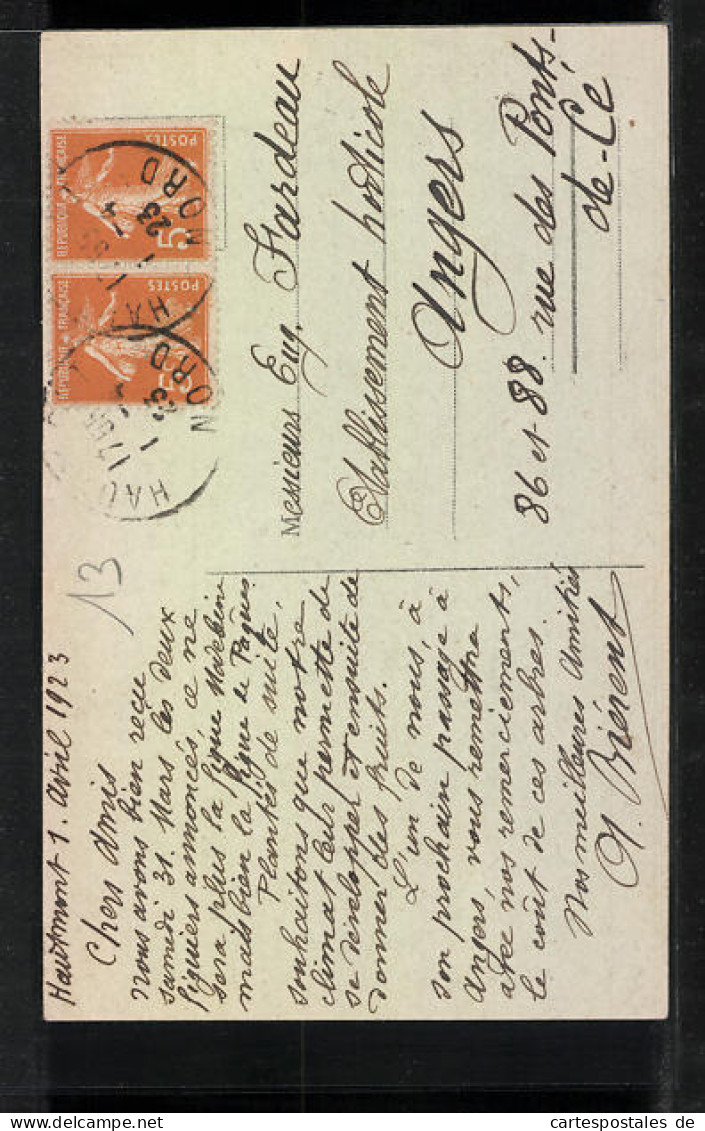 Hautmont 1. Avril 1923
Chers Amis
Nous avons bien reçu
samedi 31. Mars les deux
figuiers annoncés, ce ne
sera plus la figue Madeleine
mais bien la figue de Pâques.
Plantés de suite,
souhaitons que notre
climat leur permette de
se développer et ensuite de
donner des fruits.
L'un de nous, à
son prochain passage à
Angers, vous remettra
avec nos remerciements,
le coût de ces arbres.
Nos meilleures amitiés
A. Biérent
13
Messieurs Eug. Fardeau
Etablissement horticole
Angers
86 et 88. rue des Ponts-
de-Cé
REPUBLIQUE FRANÇAISE
POSTES
5
REPUBLIQUE FRANÇAISE
POSTES
5
NORD
NORD
cartespostales.de